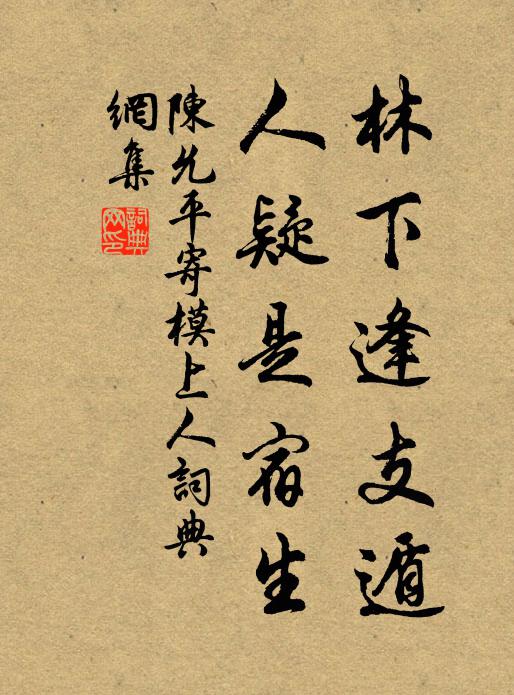 林下逢支遁
人疑是宿生
陳允平寄模上人詞典
網集
詞典
网印